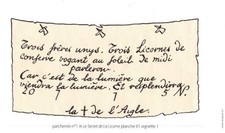 Trois frères unys. Trois Licornes de
conserve vogant au soleil de midi
parleront.
Car c'est de la lumière que
viendra la lumière. Et resplendira
20 1 7 5 N.
la † de l'Aigle.
parchemin n°1 in Le Secret de La Licorne (planche 61 vignette )